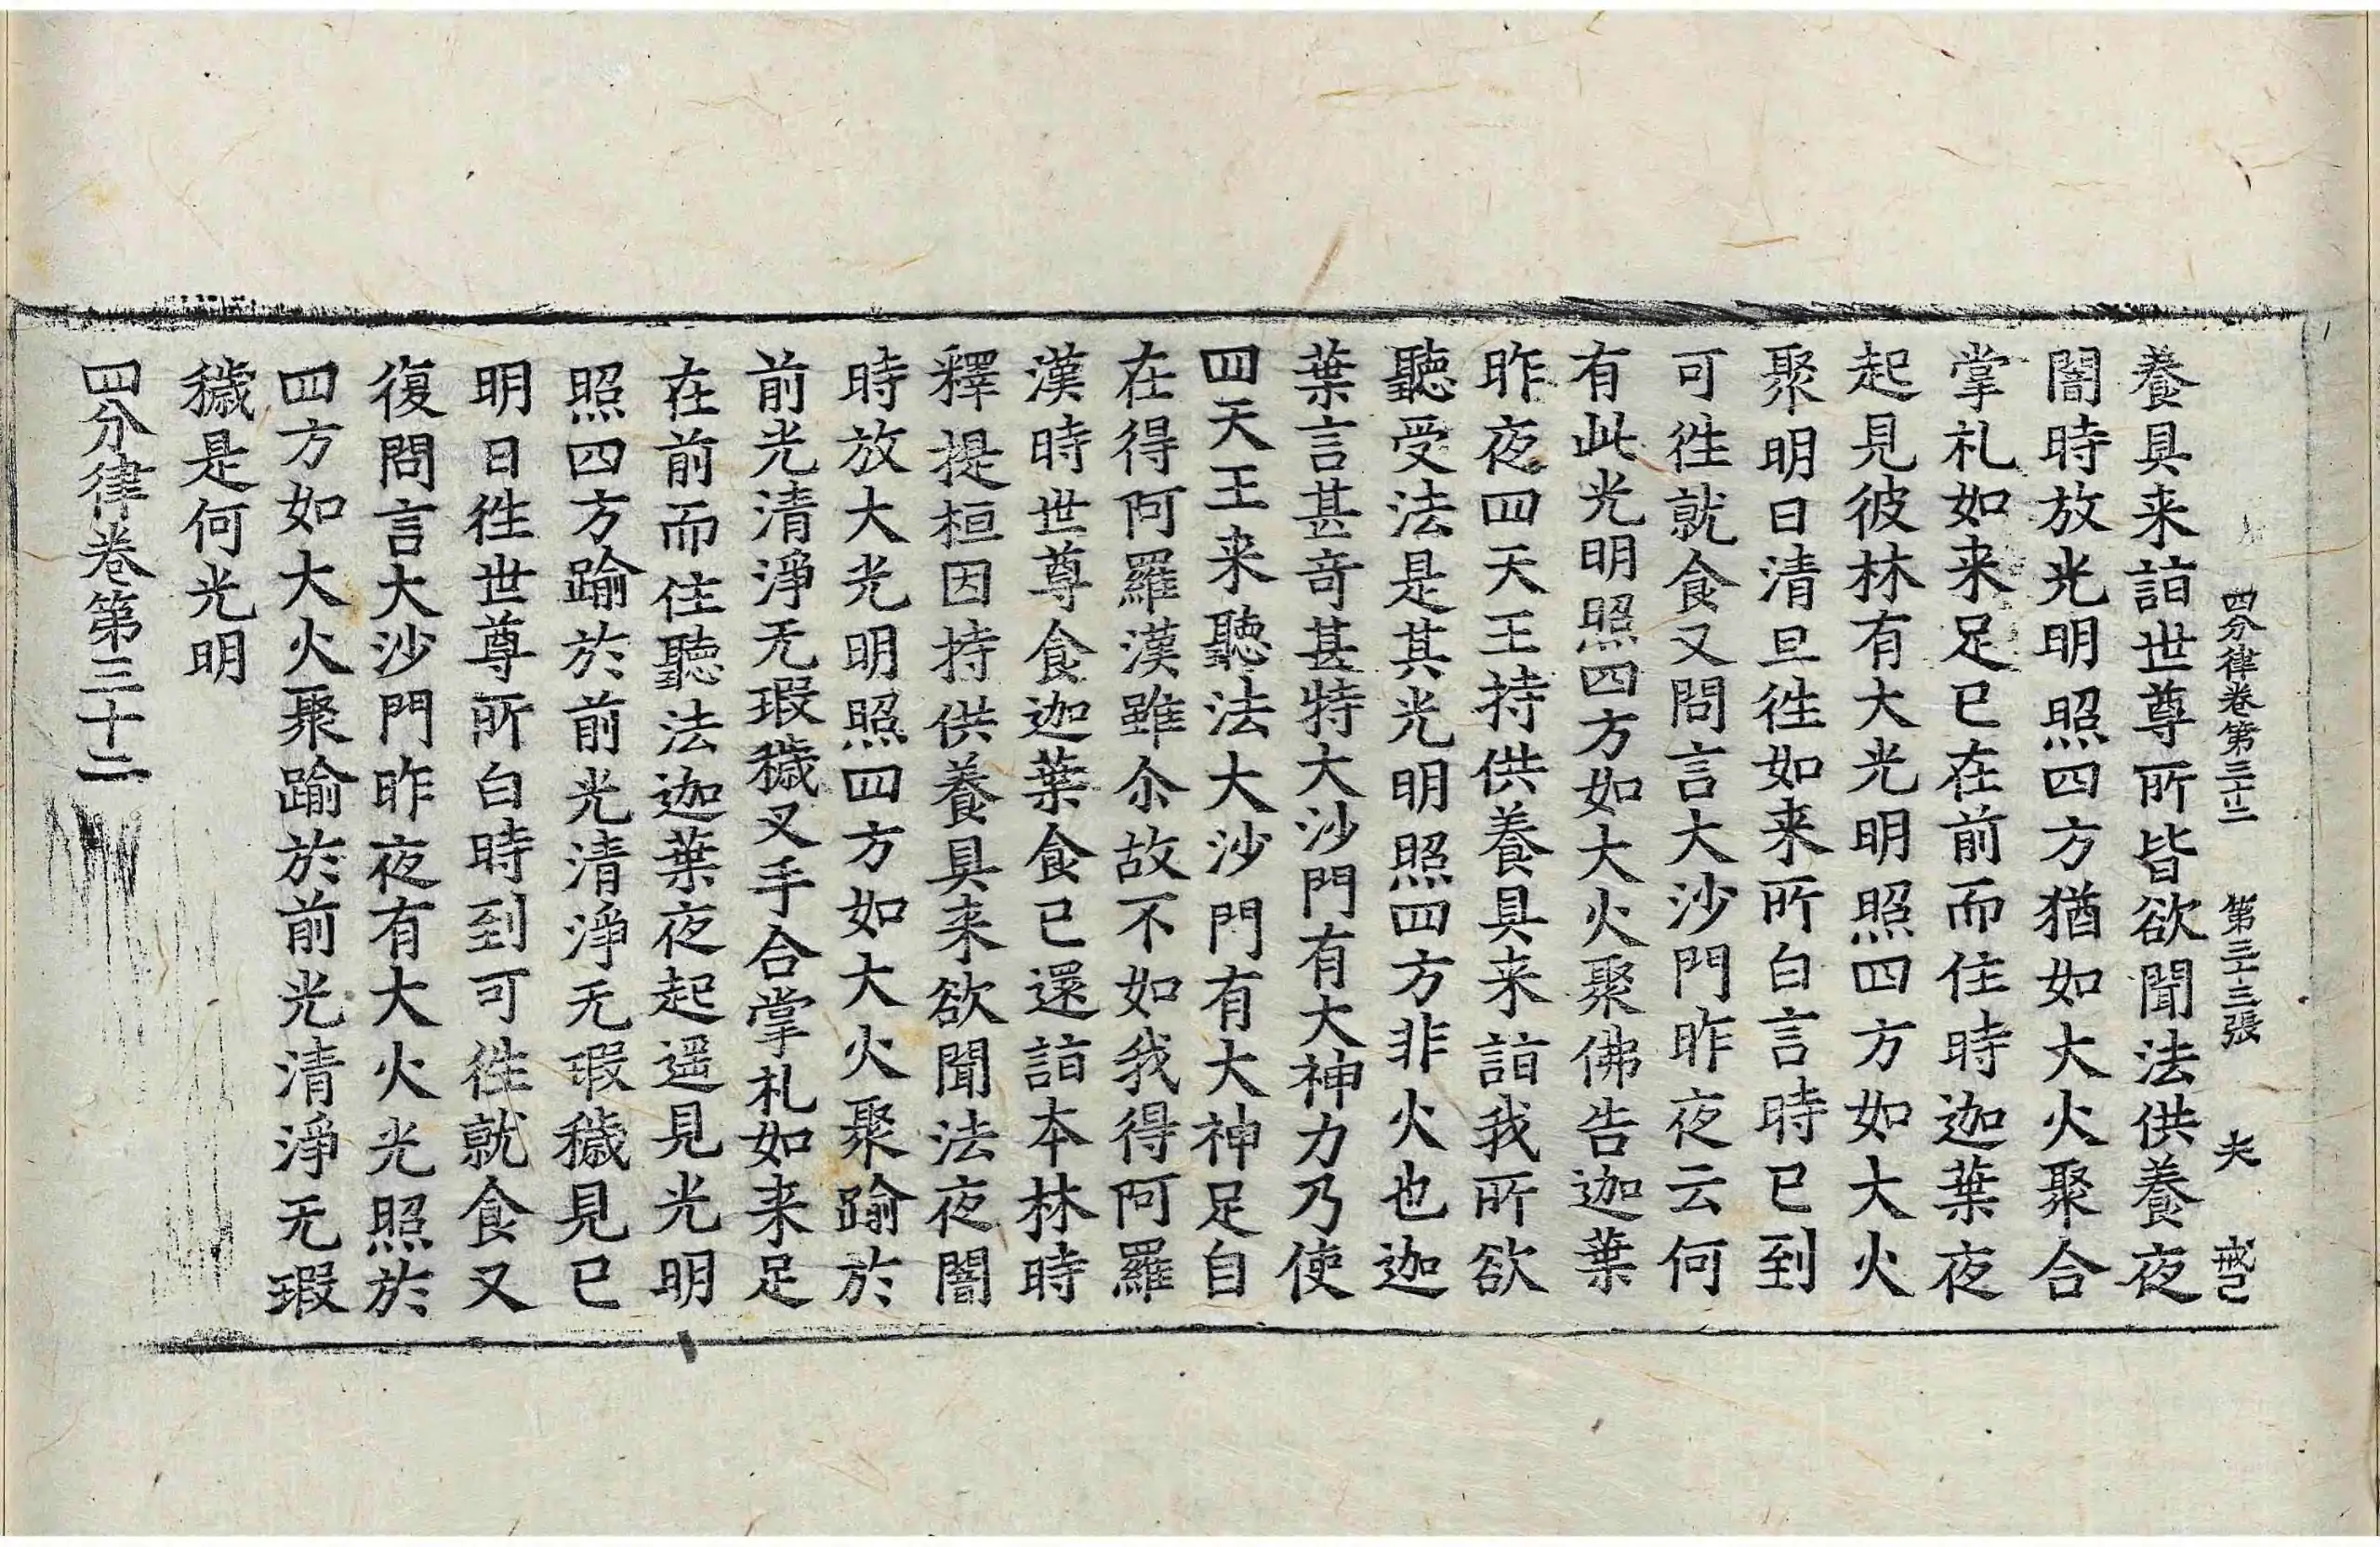 四分律卷第三十二 第三十三張 夫 戒己
養具来詣世尊所皆欲聞法供養夜
闇時放光明照四方猶如大火聚合
掌礼如来足已在前而住時迦葉夜
起見彼林有大光明照四方如大火
聚明日清旦徃如来所白言時已到
可徃就食又問言大沙門昨夜云何
有此光明照四方如大火聚佛告迦葉
昨夜四天王持供養具来詣我所欲
聽受法是其光明照四方非火也迦
葉言甚竒甚特大沙門有大神力乃使
四天王来聽法大沙門有大神足自
在得阿羅漢雖尒故不如我得阿羅
漢時世尊食迦葉食已還詣本林時
釋提桓因持供養具来欲聞法夜闇
時放大光明照四方如大火聚踰於
前光清淨无瑕穢叉手合掌礼如来足
在前而住聽法迦葉夜起遥見光明
照四方踰於前光清淨无瑕穢見已
明日徃世尊所白時到可徃就食又
復問言大沙門昨夜有大火光照於
四方如大火聚踰於前光清淨无瑕
穢是何光明
四分律卷第三十二